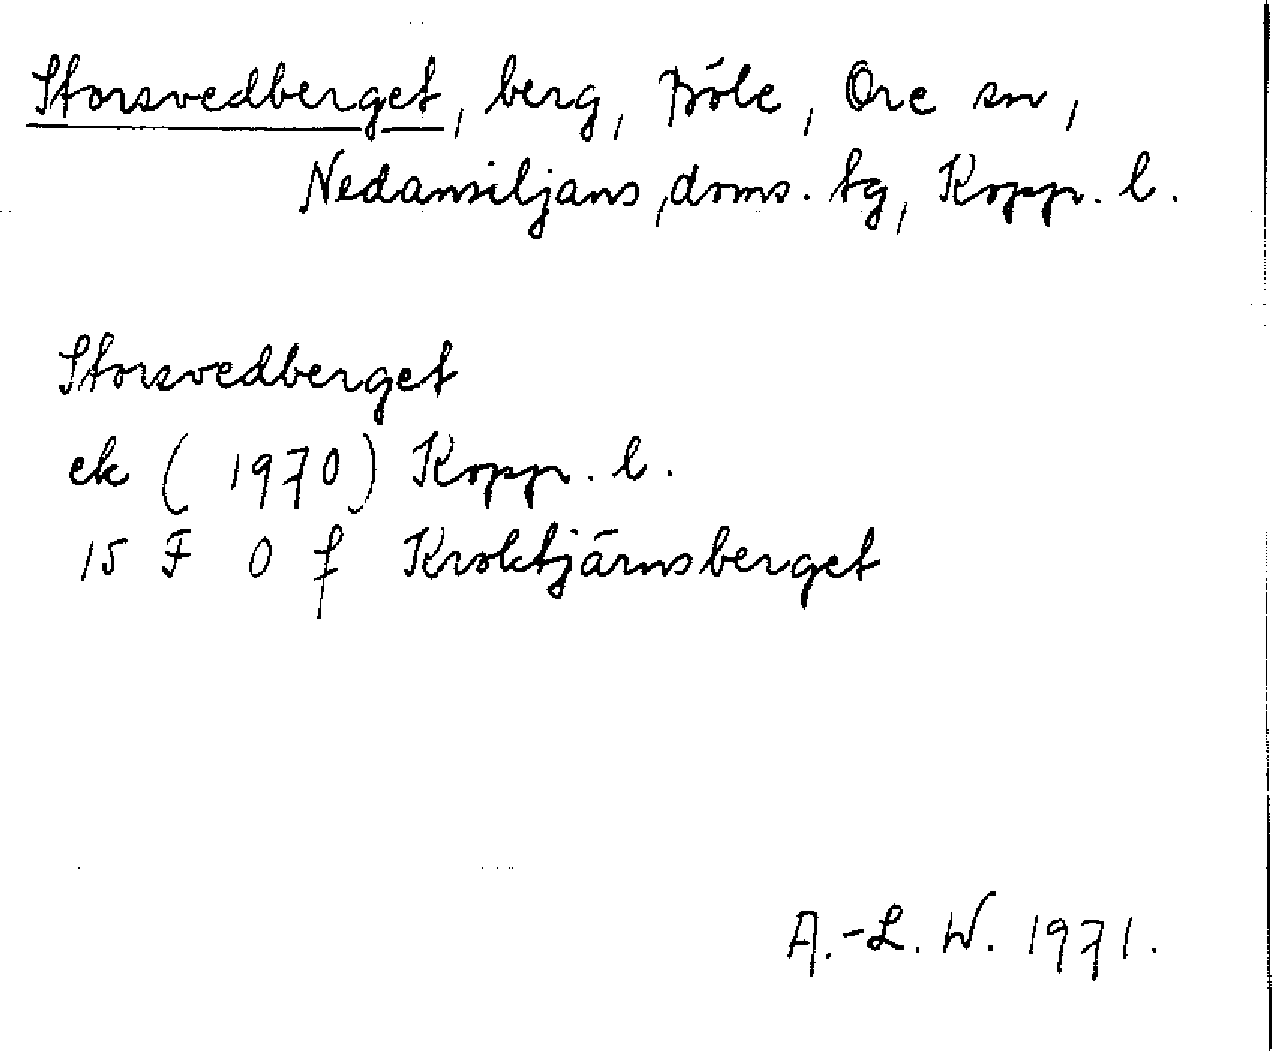 Storsvedberget, berg, Böle, Ore sn,
Nedansiljans, doms. tg, Kopp. l.
Storsvedberget
ek (1970) Kopp. l.
15 F 0 f Kroktjärnsberget
A.-L. W. 1971.